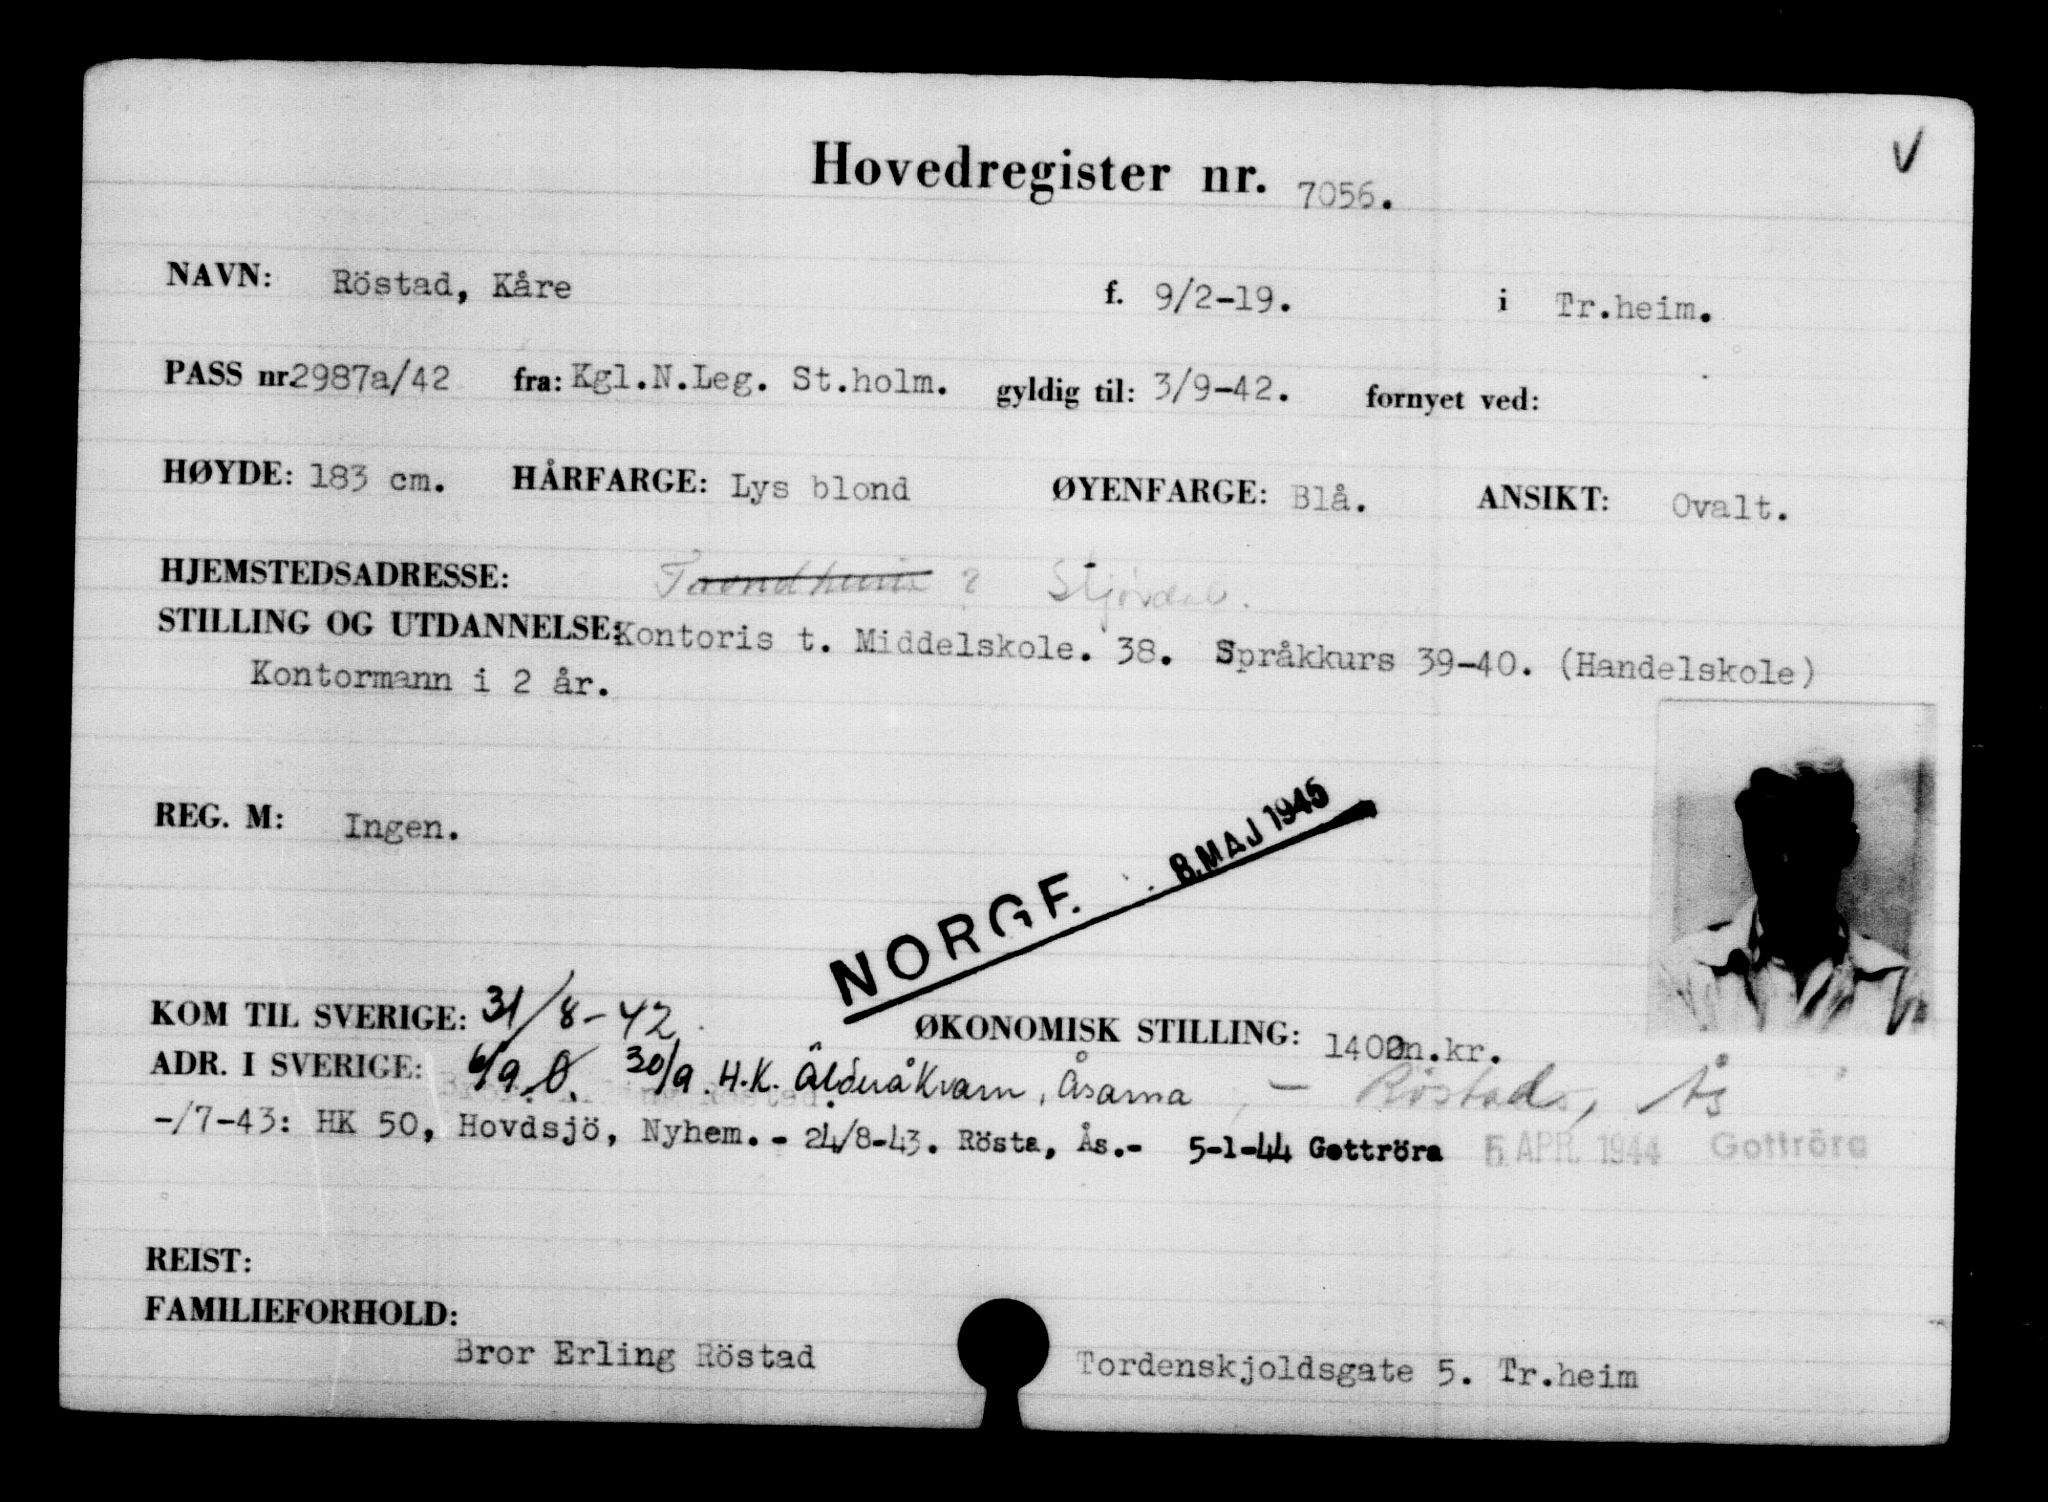 V
Hovedregister nr. 7056.
NAVN: Röstad, Kåre f. 9/2-19. i Tr.heim.
PASS nr. 2987a/42 fra: Kgl.N.Leg. St.holm. gyldig til: 3/9-42. fornyet ved:
HØYDE: 183 cm. HÅRFARGE: Lys blond ØYENFARGE: Blå. ANSIKT: Ovalt.
HJEMSTEDSADRESSE: Trondheim ? Stjørdal.
STILLING OG UTDANNELSE: Kontoris t. Middelskole. 38. Språkkurs 39-40. (Handelskole)
Kontormann i 2 år.
REG. M: Ingen.
NORGE 8. MAJ 1945
KOM TIL SVERIGE: 31/8-42 ØKONOMISK STILLING: 1400n.kr.
ADR. I SVERIGE: 6/9 Ö. 30/9. H.K. Älderåkvarn, Åsarna, - Röstad, Ås
-/7-43: HK 50, Hovdsjö, Nyhem. - 24/8-43. Rösta, Ås.- 5-1-44 Gottröra 5. APR. 1944 Gottröra
REIST:
FAMILIEFORHOLD:
Bror Erling Röstad Tordenskjoldsgate 5. Tr.heim